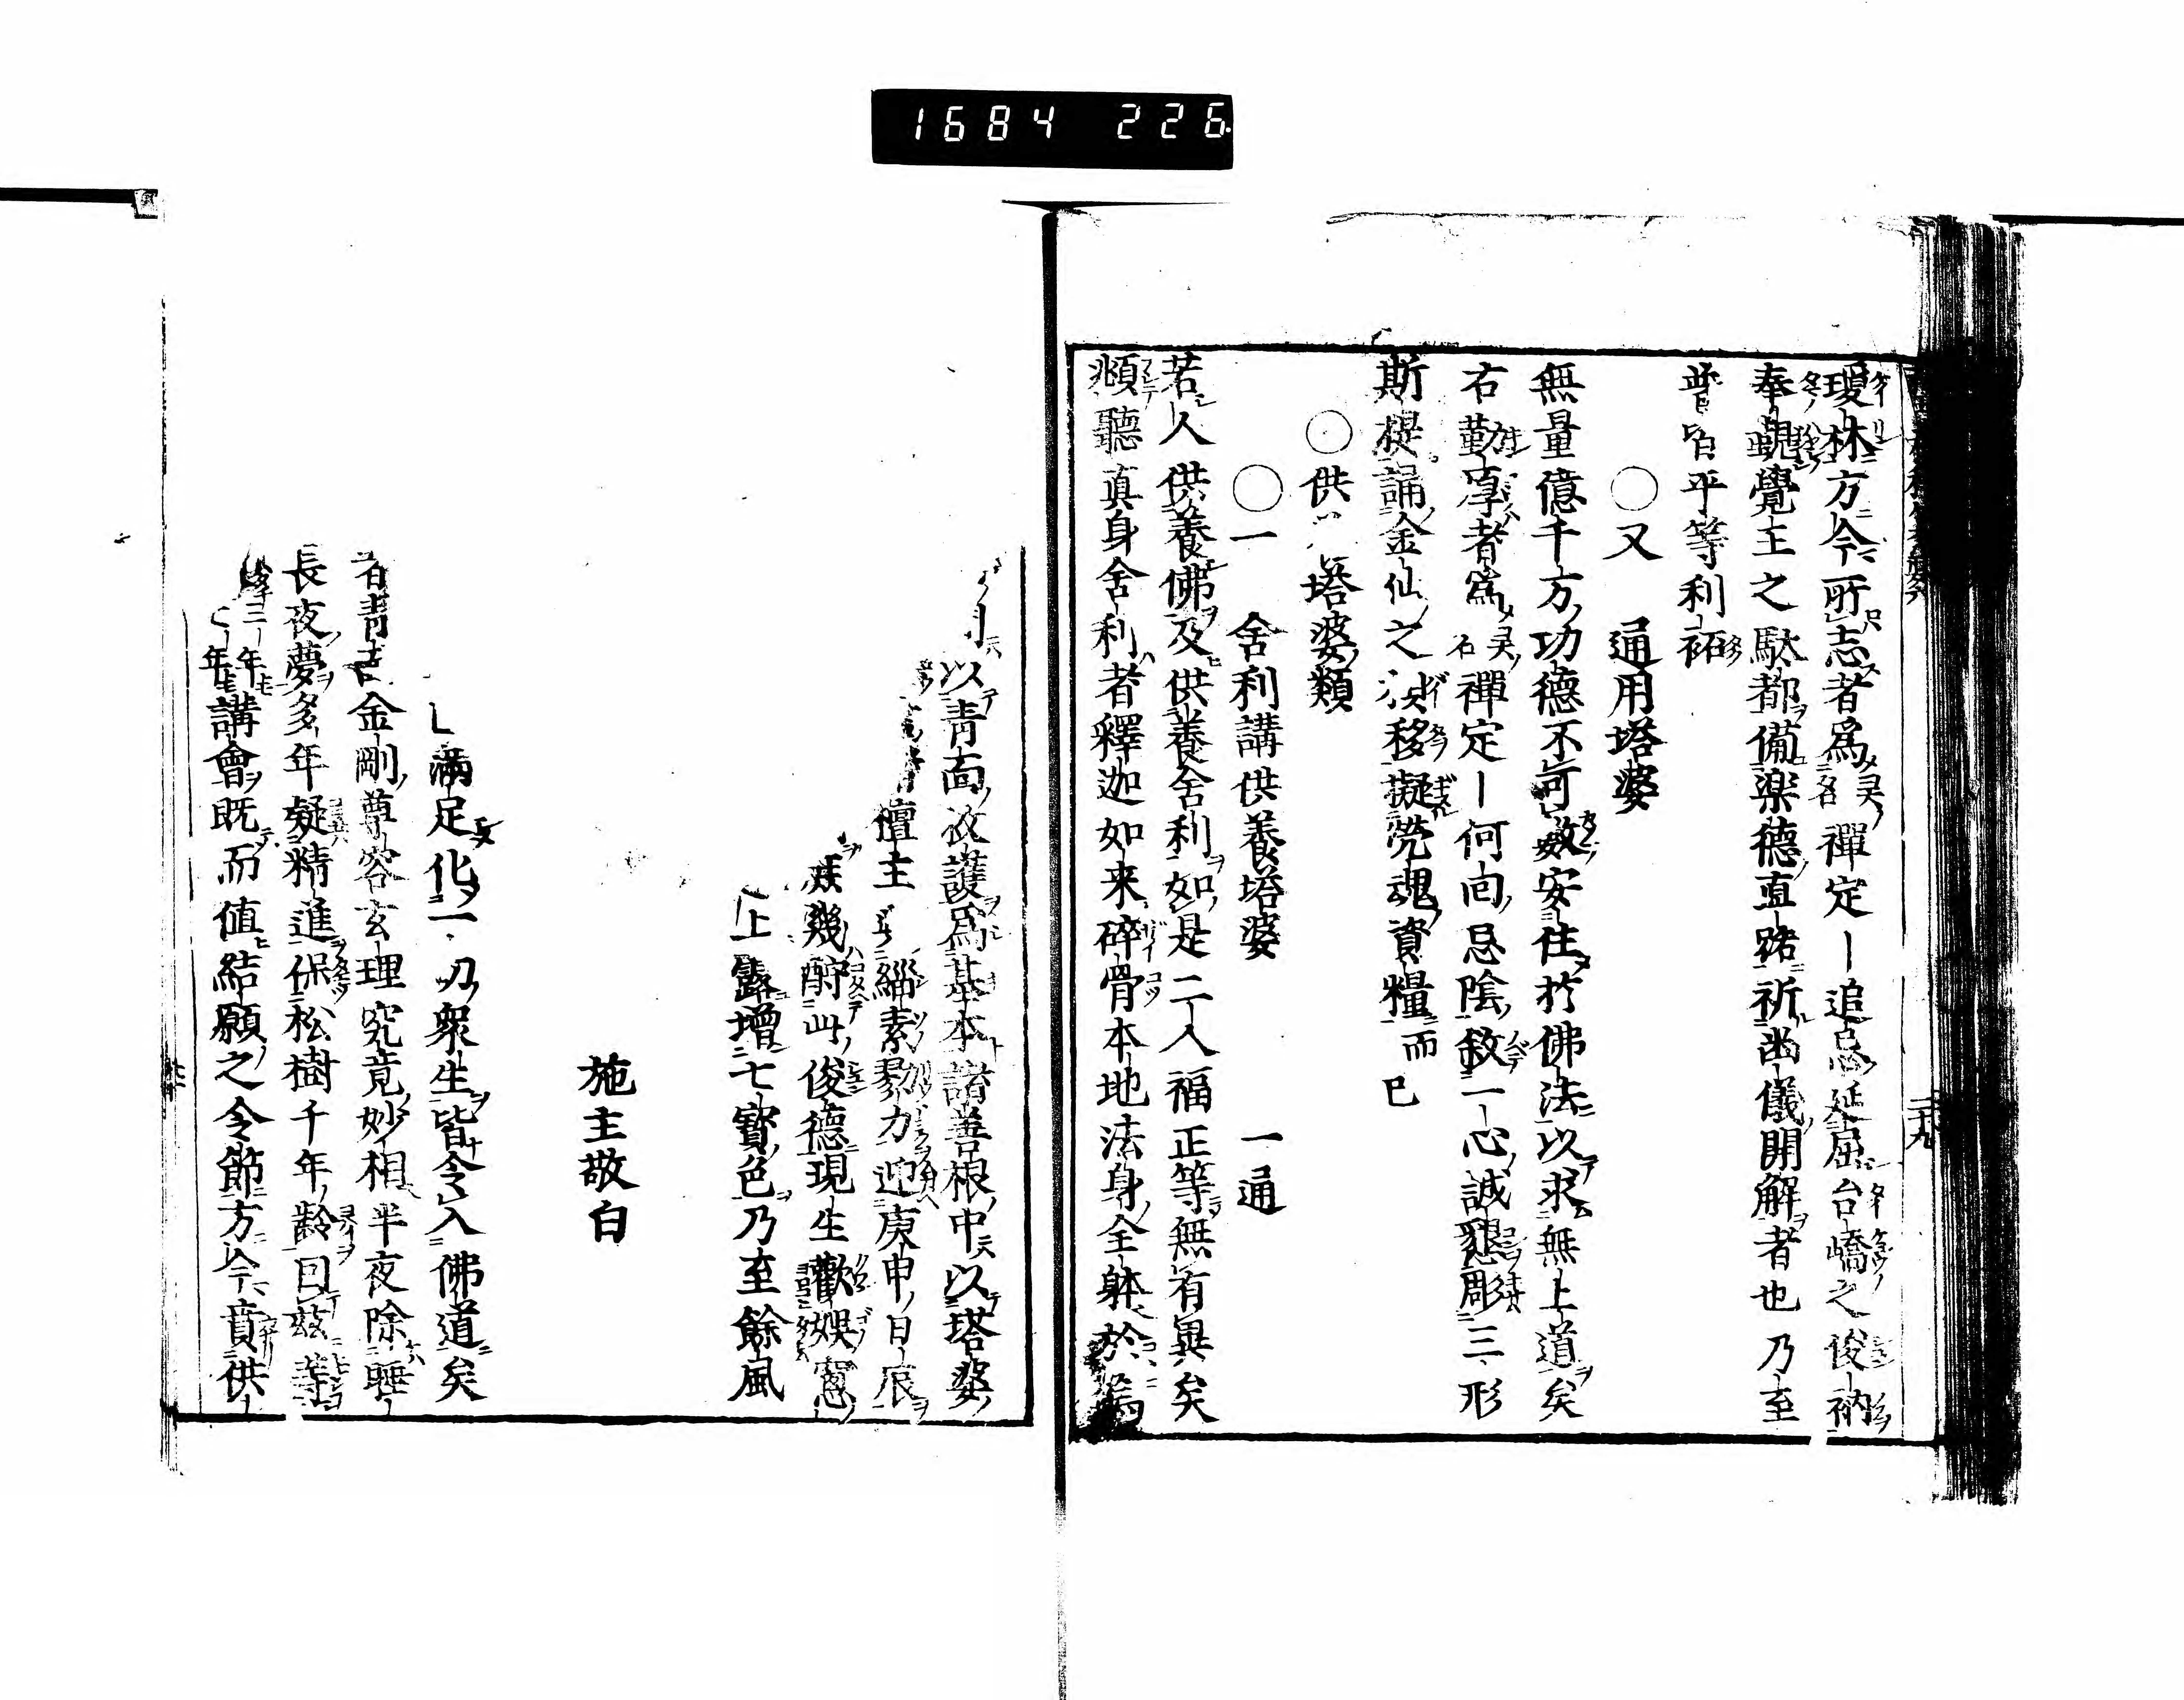 1684 226
瓊林方今所志者為 霊名 禪定ー追忌延屈台嶠之俊衲
奉覲覺王之馱都備楽德直路祈函儀開解者也乃至
普皆平等利益
〇又 通用塔婆
無量億千方功德不可數安住於佛法以求無上道矣
右勤厚者為 霊名 禪定ー何回忌陰敘一心誠懇彫三形
斯提誦金仙之 移擬焭魂資糧而已
〇供 塔婆類
〇一 舍利講供養塔婆 一通
若人供養佛及供養舍利如是二人福正等無有異矣
頫聽真身舍利者釋迦如来碎骨本地法身全躰於焉
二十九
以青面 護為基本諸善根中以塔婆
檀主 緇素勠力迎庚申日辰
幾酹此俊德現生歡娯窓
上露增七寳色乃至餘風
施主敬白
滿足化一切衆生皆令入佛道矣
右青 金剛尊容玄理究竟妙相半夜除睡
長夜夢多年凝精進保松樹千年齡囙茲等
三年 年講會既而値結願之令節方今賁供